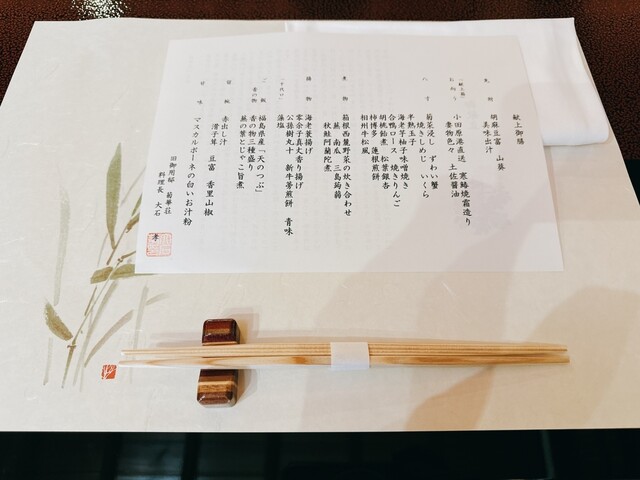 献上御膳
先附
胡麻豆富 山葵
美味出汁
小田原港直送 寒鰆焼霜造り
妻物色々 土佐醤油
八寸
菊菜浸し ずわい蟹
焼きしめじ いくら
半熟玉子
海老芋柚子味噌焼き
合鴨ロース 焼きりんご
胡桃飴煮 松葉銀杏
柿博多 蓮根煎餅
相州牛松風
煮物
箱根西麓野菜の炊き合わせ
蕪 南瓜 三島蒟蒻
秋鮭阿蘭陀煮
揚物
海老葵揚げ
零余子真丈香り揚げ
公孫樹丸十 新牛蒡煎餅 青味
藻塩
ご飯
香の物
福島県産「天のつぶ」
香の物三種盛り
蕪の葉とじゃこ旨煮
留椀
赤出し汁
滑子茸 豆富 香里山椒
甘味
マスカルポーネの白いお汁粉
旧御用邸 菊華荘
料理長 大石
孝